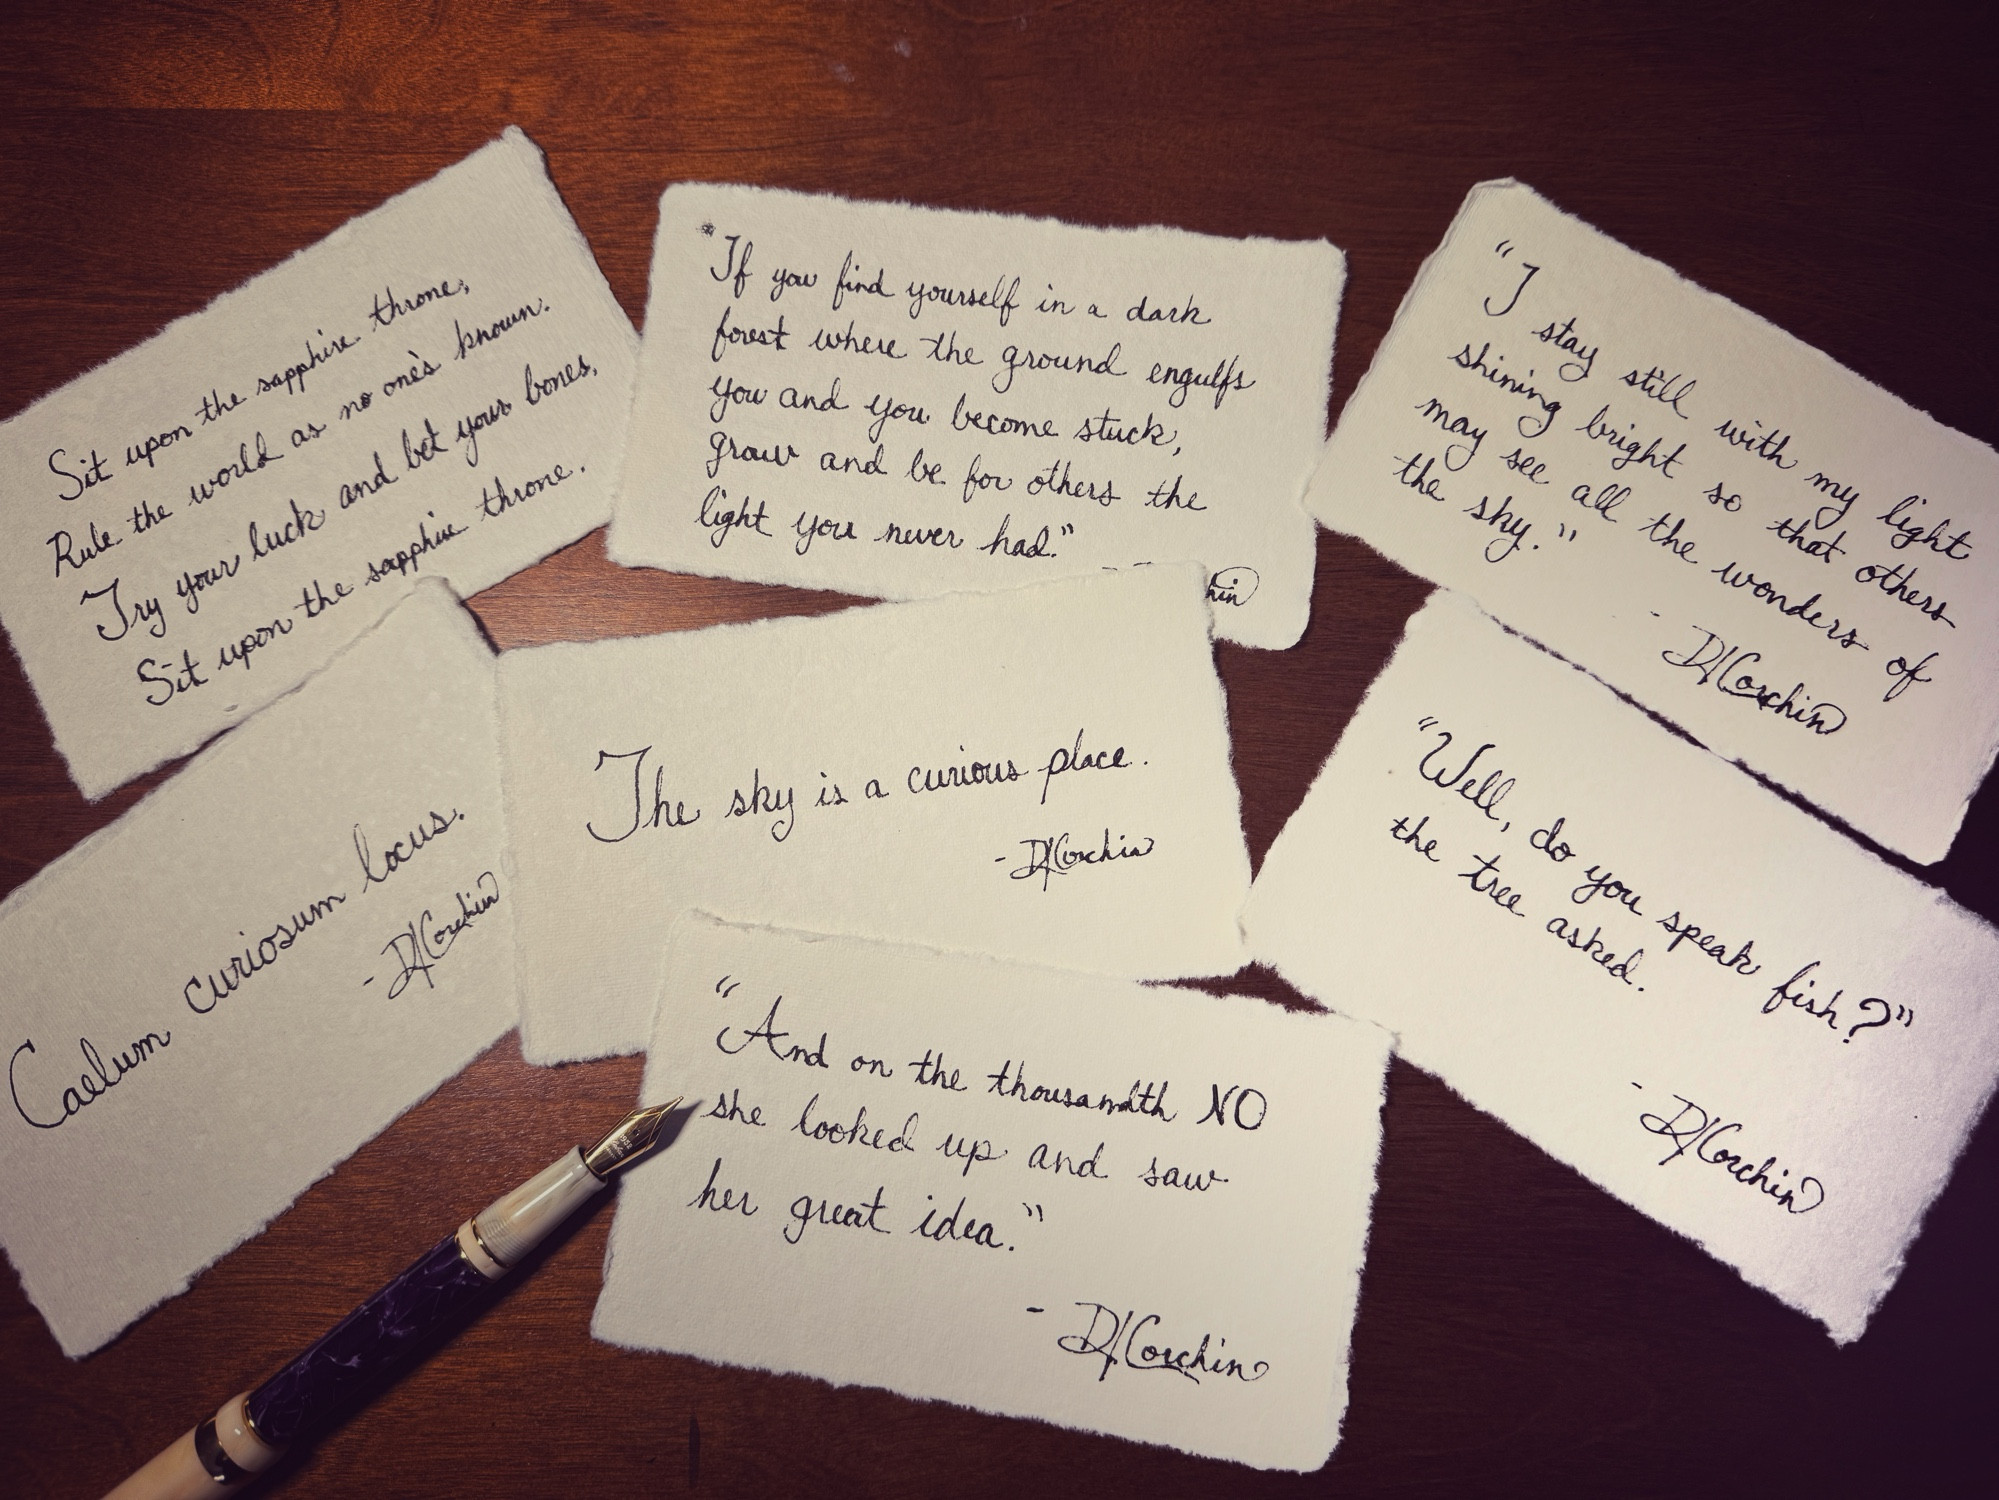 Sit upon the sapphire throne,
Rule the world as no one's known.
Try your luck and bet your bones,
Sit upon the sapphire throne.
"If you find yourself in a dark
forest where the ground engulfs
you and you become stuck,
grow and be for others the
light you never had."
hin
"I stay still with my light
shining bright so that others
may see all the wonders of
the sky."
- DH Corchin
Caelum curiosum locus.
- DH Corchin
The sky is a curious place.
- DH Corchin
"Well, do you speak fish?"
the tree asked.
- DH Corchin
"And on the thousandth NO
she looked up and saw
her great idea."
- DH Corchin